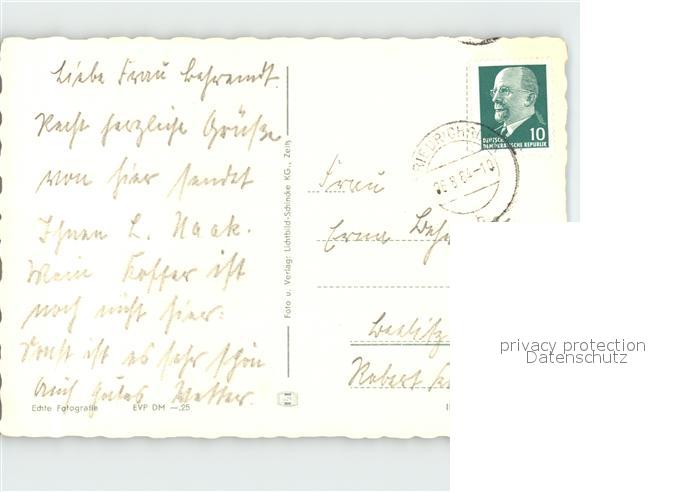 Liebe Frau Behrendt.
Recht herzliche Grüße
von hier sendet
Ihnen L. Naak.
Mein Koffer ist
noch nicht hier.
Sonst ist es sehr schön
Auch gutes Wetter.
Echte Fotografie EVP DM —.25
Foto u. Verlag: Lichtbild-Schincke KG., Zeitz
10
DEUTSCHE
DEMOKRATISCHE REPUBLIK
RIEDRICHR
8.64-10
Frau
Erna Beh
Beelitz
Robert
privacy protection
Datenschutz